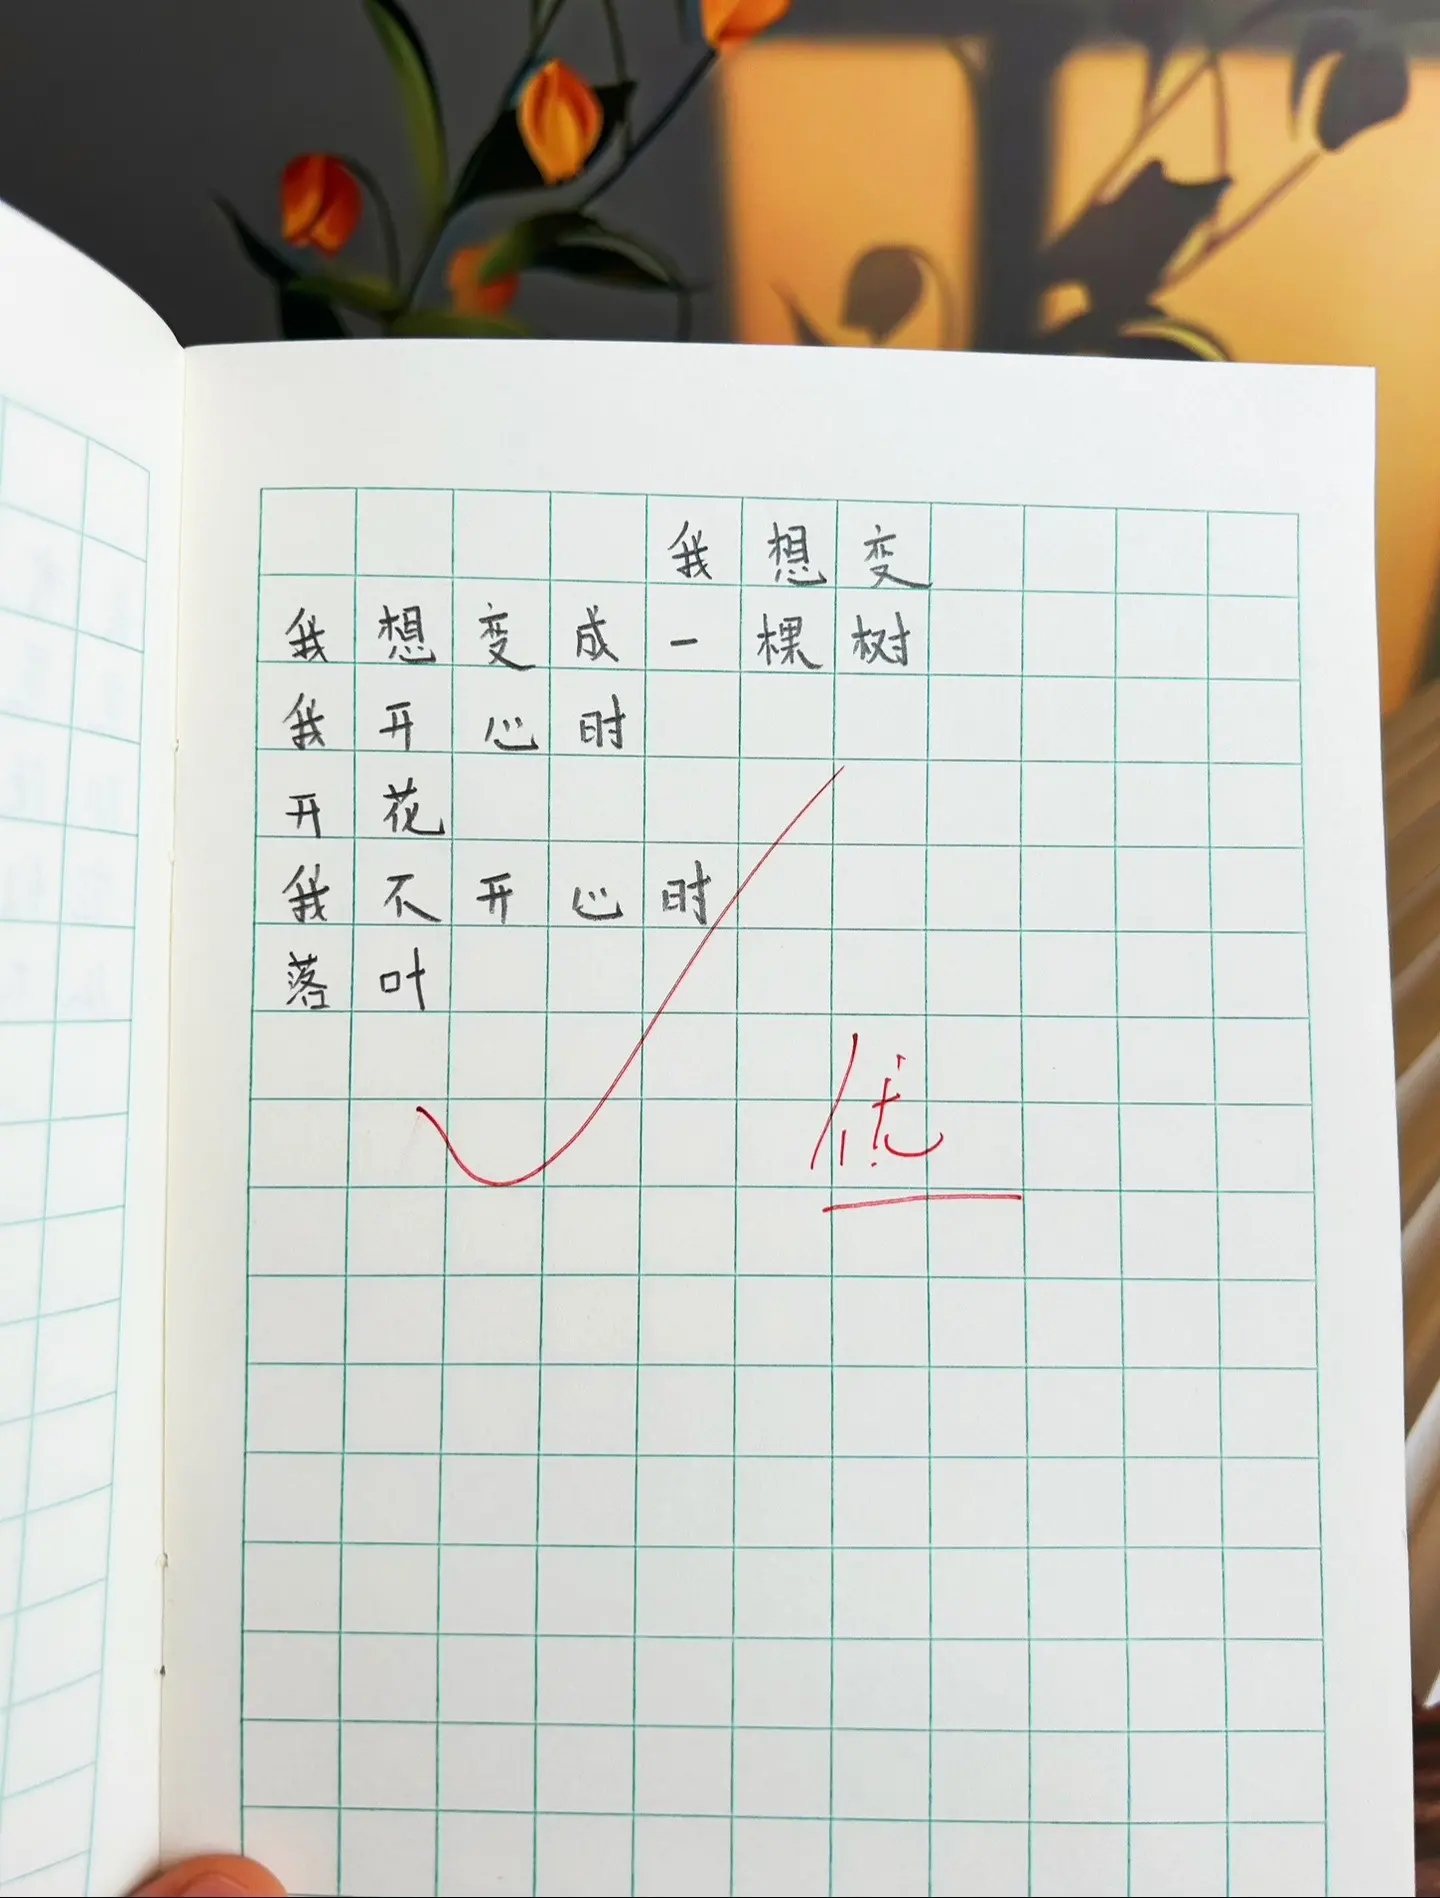 我想变
我想变成一棵树
我开心时
开花
我不开心时
落叶
优